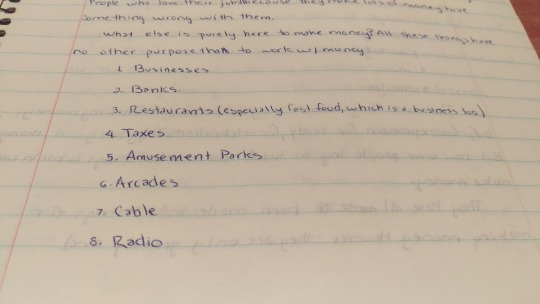 People who love their job because they make lots of money have
something wrong with them.
What else is purely here to make money? All these things have
no other purpose than to work w/ money:
1. Businesses
2. Banks
3. Restaurants (especially fast food, which is a business too)
4. Taxes
5. Amusement Parks
6. Arcades
7. Cable
8. Radio